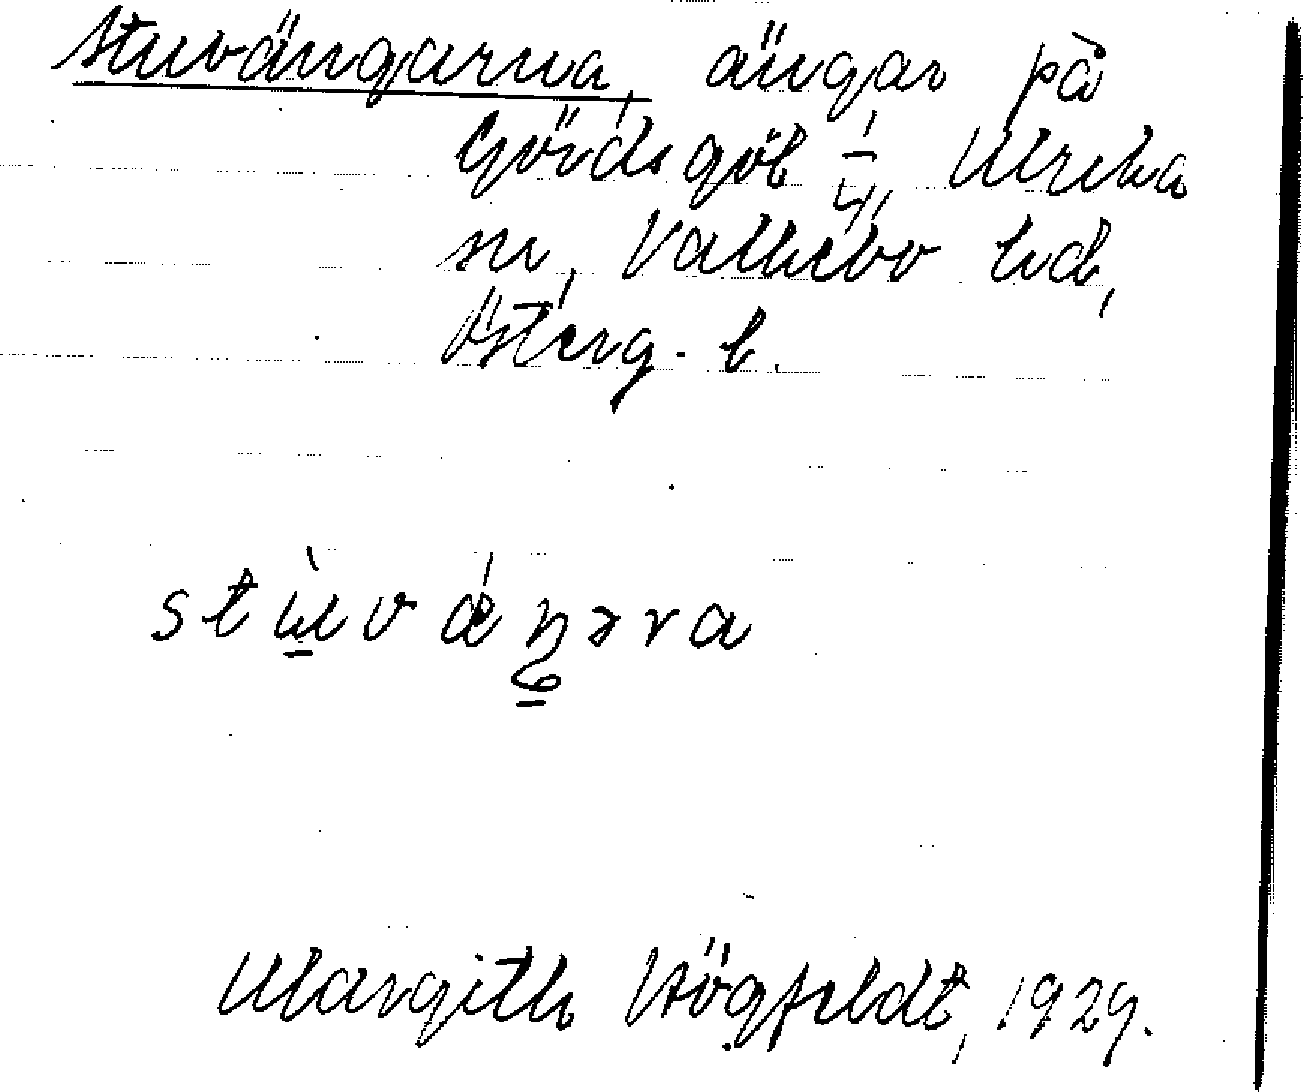 Stuvängarna, ängar på
Gördsgöl 1/4, Ulrika
sn, Valkebo hd,
Österg. l.
stu̠̇̀vǽŋ̠əra
Margith Högfeldt, 1929.